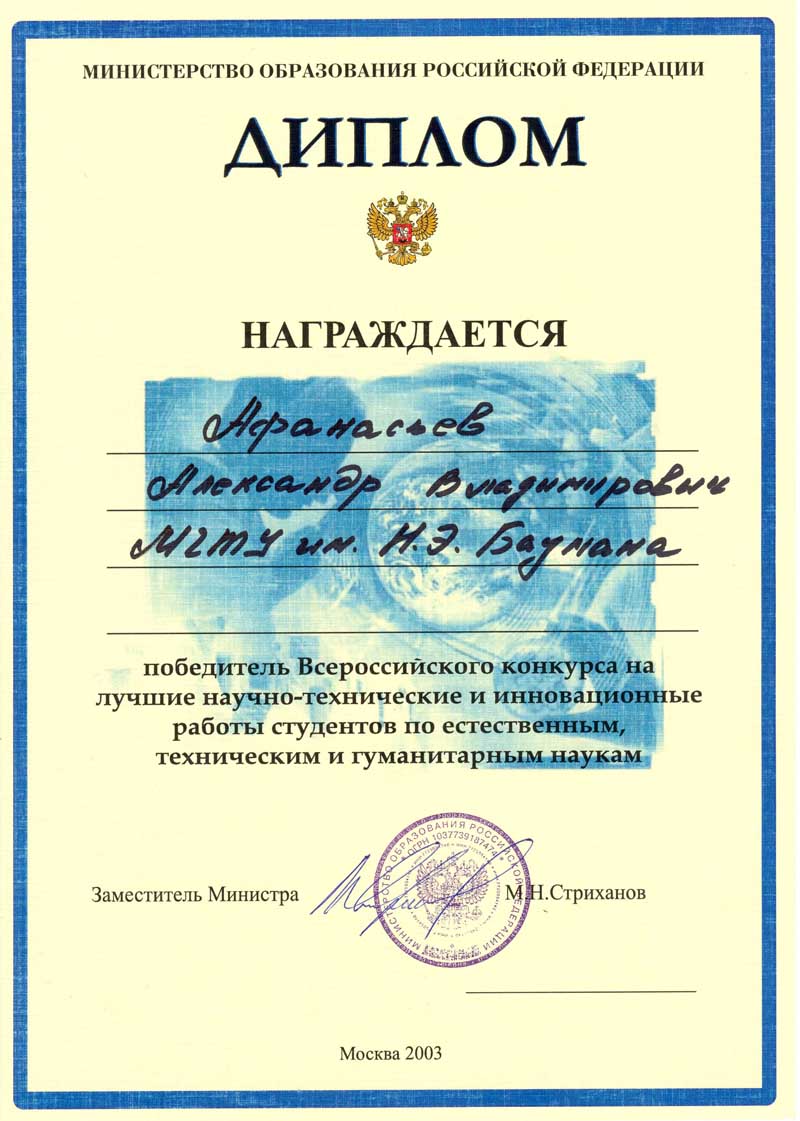 МИНИСТЕРСТВО ОБРАЗОВАНИЯ РОССИЙСКОЙ ФЕДЕРАЦИИ
ДИПЛОМ
НАГРАЖДАЕТСЯ
Афанасьев
Александр Владимирович
МГТУ им. Н.Э. Баумана
победитель Всероссийского конкурса на
лучшие научно-технические и инновационные
работы студентов по естественным,
техническим и гуманитарным наукам
МИНИСТЕРСТВО ОБРАЗОВАНИЯ РОССИЙСКОЙ ФЕДЕРАЦИИ
ОГРН 1037739187474
Заместитель Министра
М.Н.Стриханов
Москва 2003